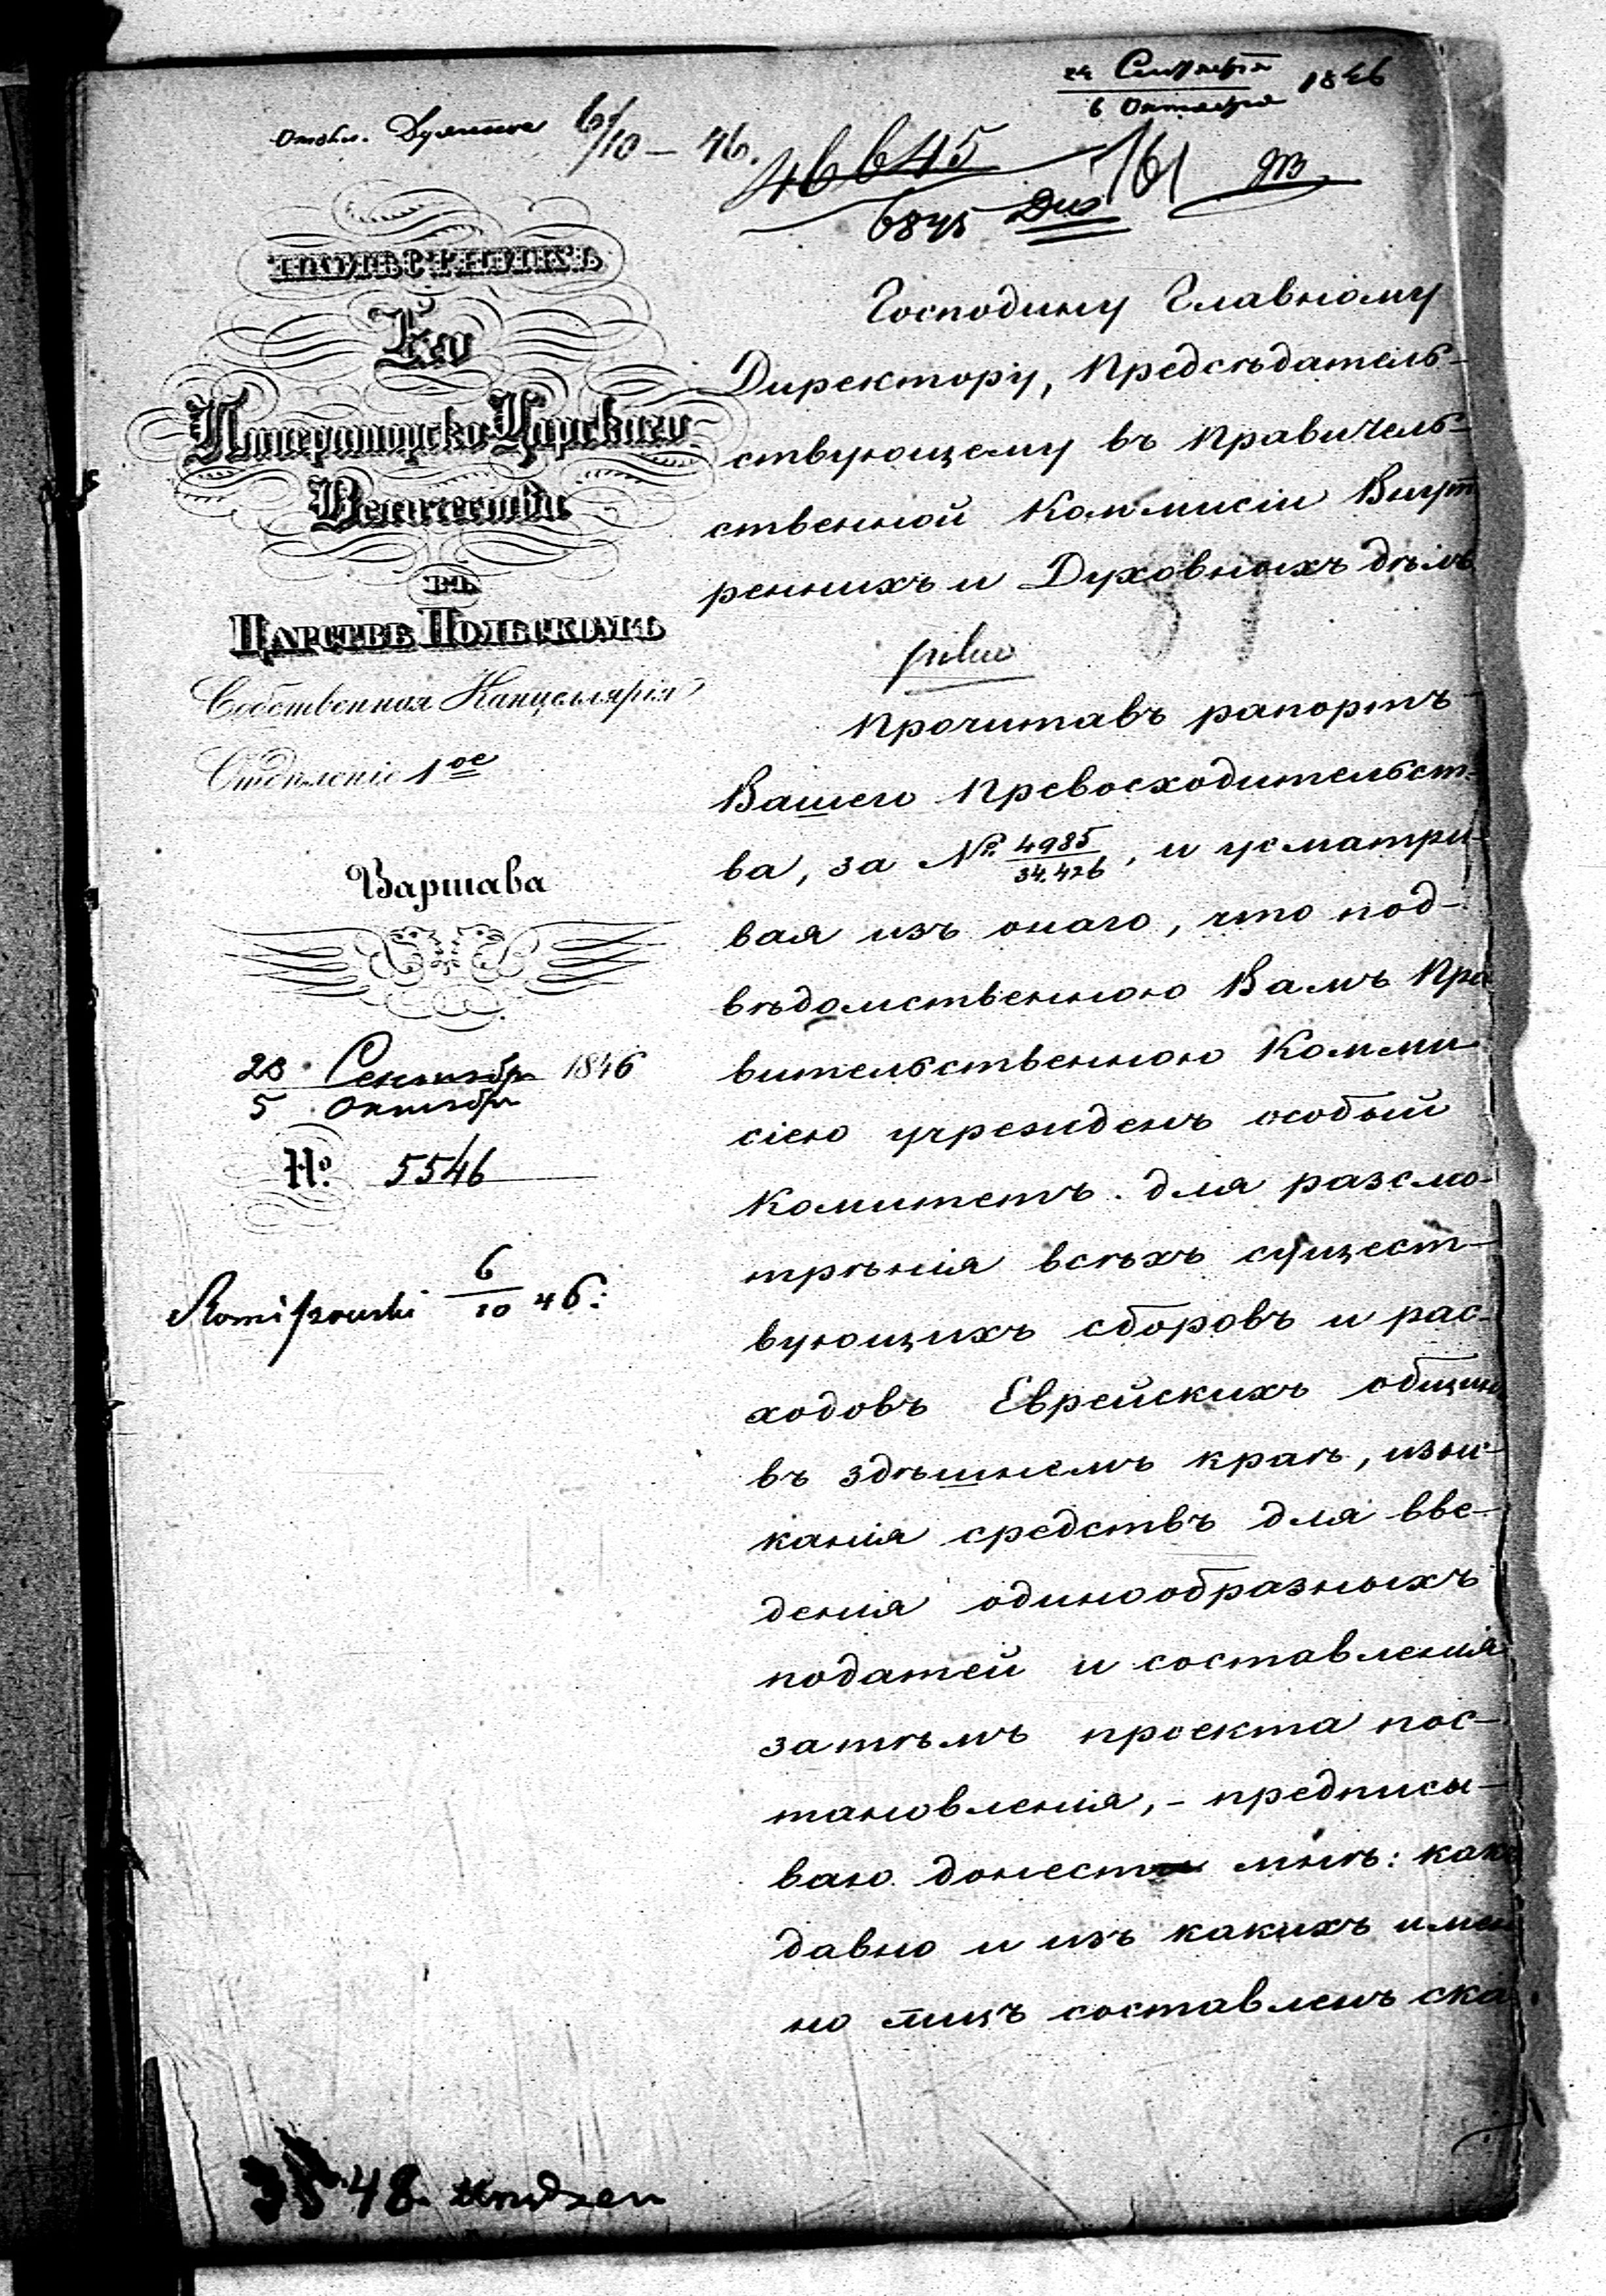 6/10 — 46.
Сентября 1846
6 Октября
46645
6845
161
НАМѢСТНИКЪ
Его
Императорско-Царскаго
Величества
въ
Царствѣ Польскомъ
Собственная Канцелярія
Отдѣленіе 1ое
Варшава
23 Сентября 1846
5 Октября
№ 5546
6/10 46.
Господину Главному
Директору, Предсѣдатель-
ствующему въ Правитель-
ственной Коммисіи Внут
реннихъ и Духовныхъ дѣлъ
pilno
Прочитавъ рапортъ
Вашего Превосходительст-
ва, за № 4985/34.426, и усматри-
вая изъ онаго, что под-
вѣдомственною Вамъ Пра
вительственною Комми
сіею учрежденъ особый
Комитетъ для разсмо-
трѣнія всѣхъ сущест-
вующихъ сборовъ и рас-
ходовъ Еврейскихъ общинъ
въ здѣшнемъ краѣ, изы-
канія средствъ для вве-
денія одинообразныхъ
податей и составленія
затѣмъ проекта пос-
тановленія, - предписы-
ваю донести мнѣ: какъ
давно и изъ какихъ имен
но лицъ составленъ ска
48.